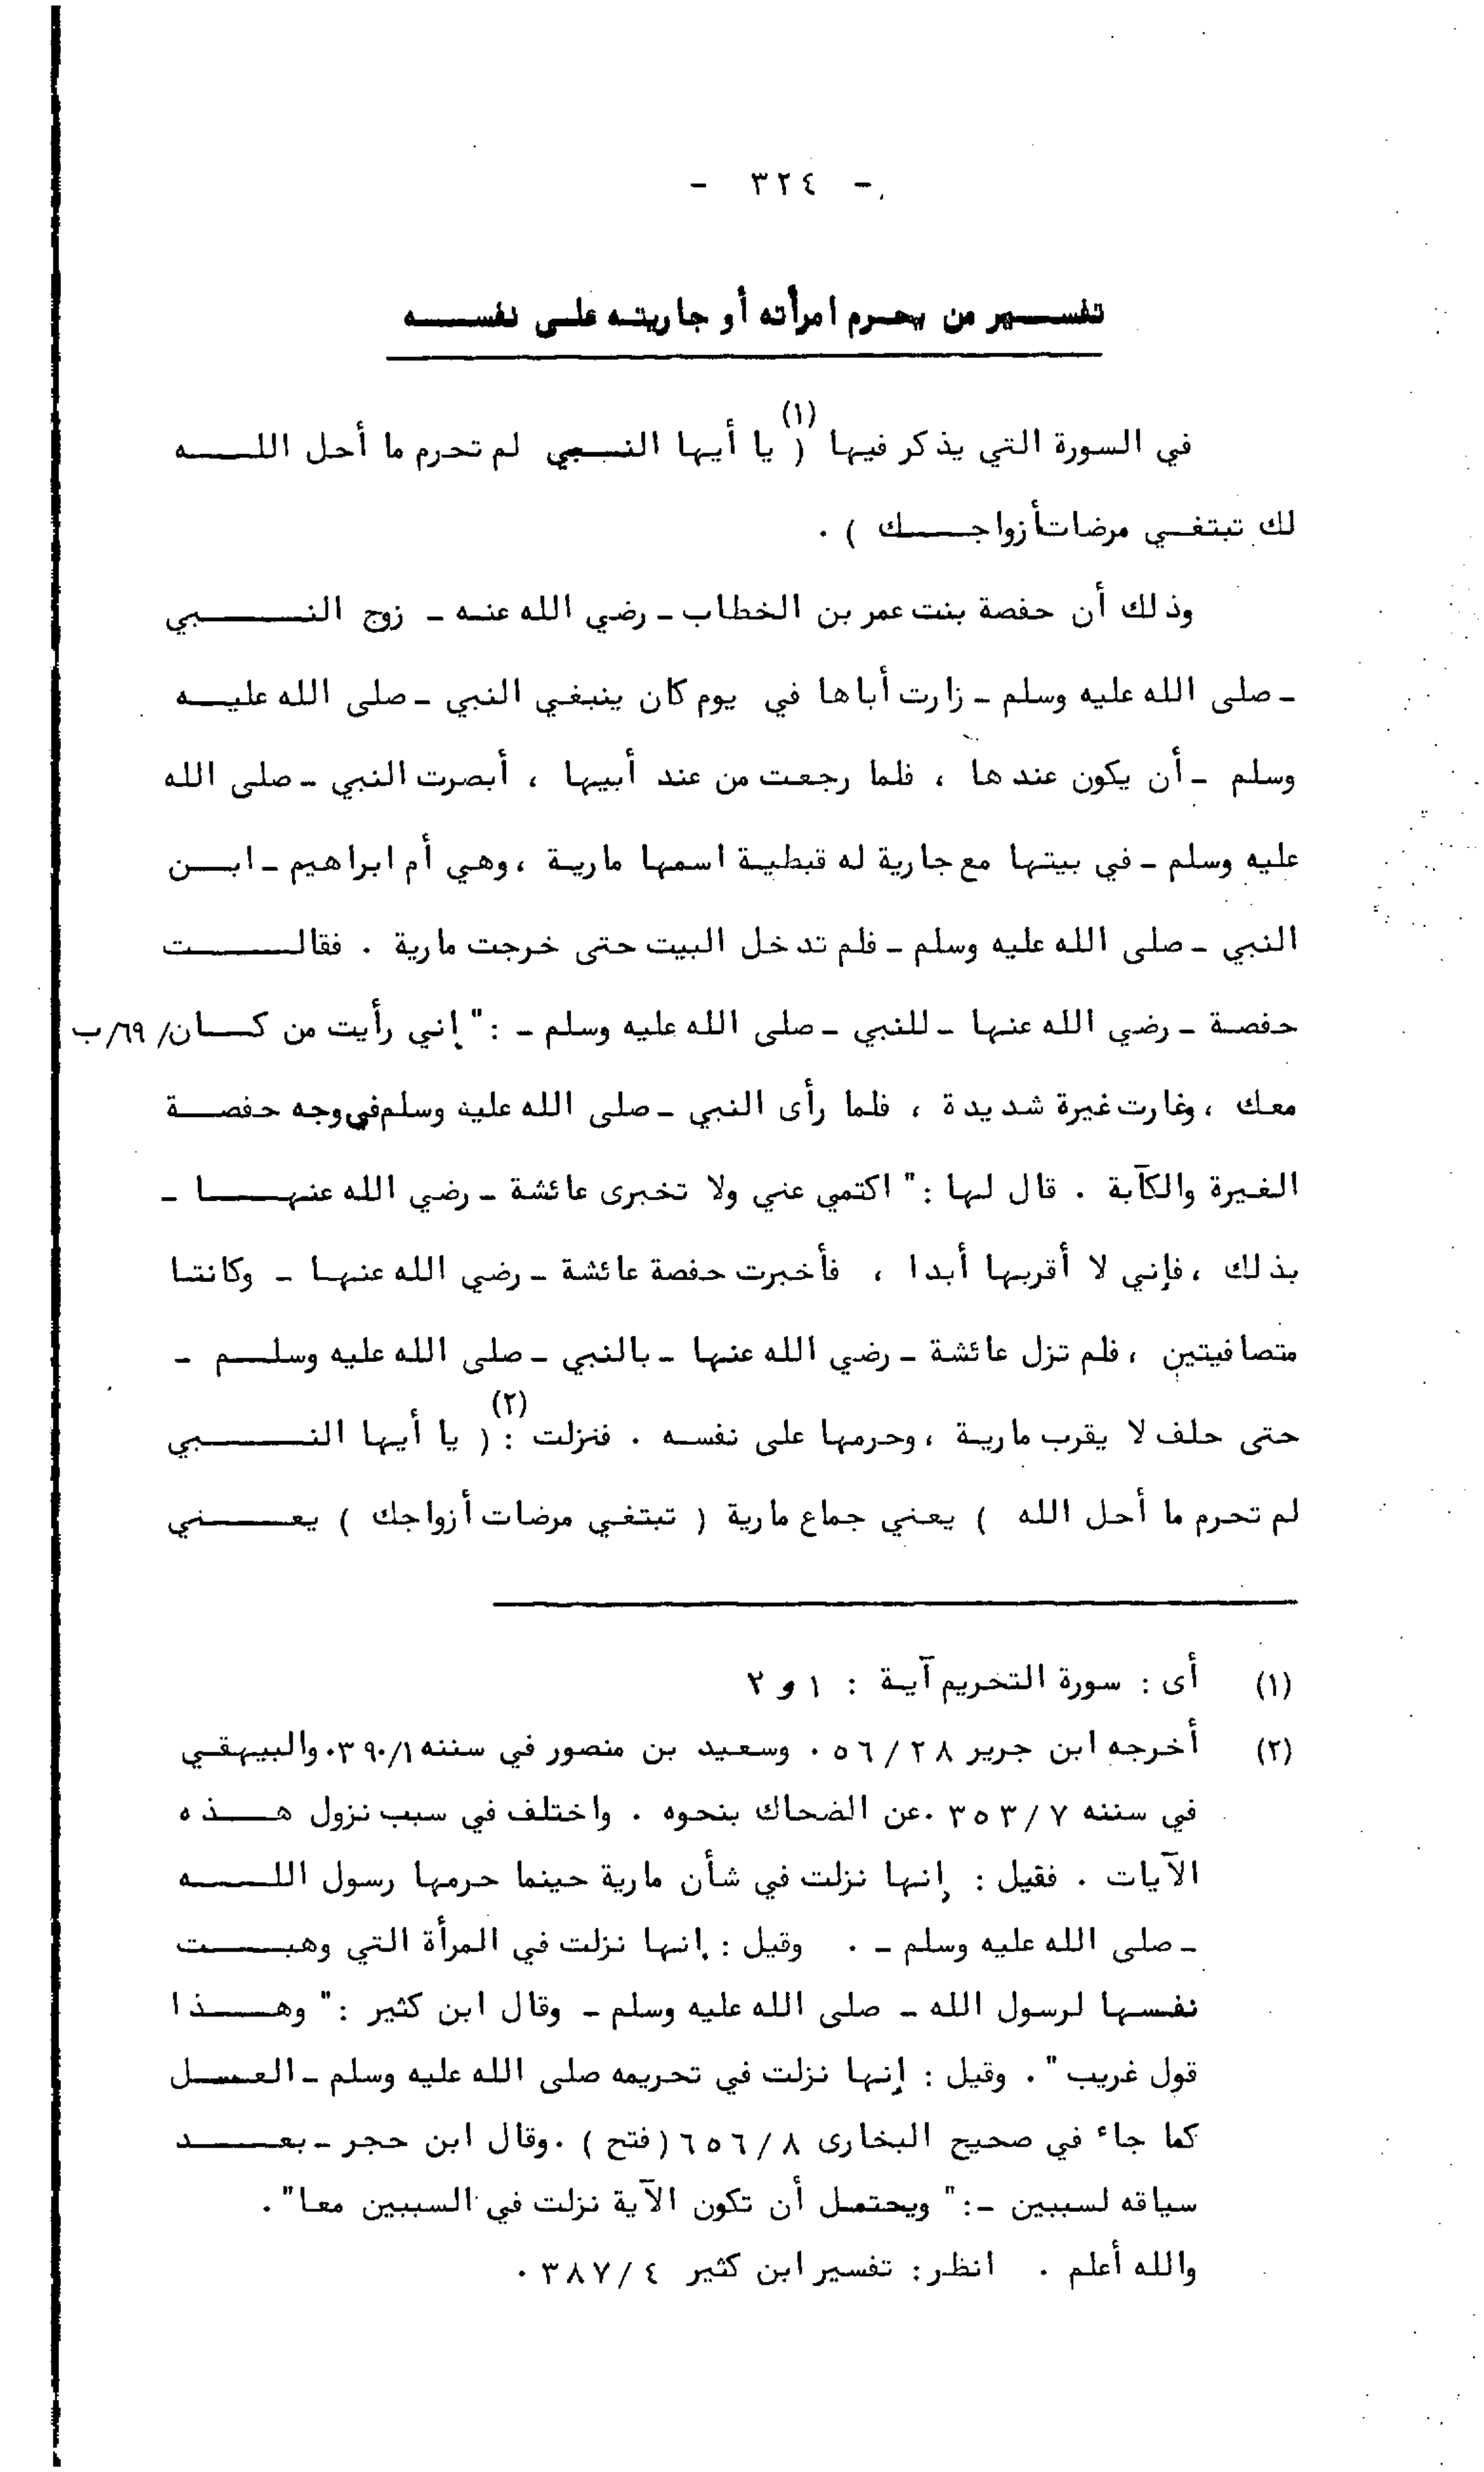 - ٣٢٤ -
تفسير من يحرم امرأته أو جاريته على نفسه
في السورة التي يذكر فيها (١) ( يا أيها النبي لم تحرم ما أحل الله
لك تبتغي مرضات أزواجك ) .
وذلك أن حفصة بنت عمر بن الخطاب - رضي الله عنه - زوج النبي
- صلى الله عليه وسلم - زارت أباها في يوم كان ينبغي النبي - صلى الله عليه
وسلم - أن يكون عندها ، فلما رجعت من عند أبيها ، أبصرت النبي - صلى الله
عليه وسلم - في بيتها مع جارية له قبطية اسمها مارية ، وهي أم ابراهيم - ابن
النبي - صلى الله عليه وسلم - فلم تدخل البيت حتى خرجت مارية . فقالت
حفصة - رضي الله عنها - للنبي - صلى الله عليه وسلم - : " إني رأيت من كان /٦٩/ب
معك ، وغارت غيرة شديدة ، فلما رأى النبي - صلى الله عليه وسلم في وجه حفصة
الغيرة والكآبة . قال لها : " اكتمي عني ولا تخبرى عائشة - رضي الله عنها -
بذلك ، فإني لا أقربها أبدا ، فأخبرت حفصة عائشة - رضي الله عنها - وكانتا
متصافيتين ، فلم تزل عائشة - رضي الله عنها - بالنبي - صلى الله عليه وسلم -
حتى حلف لا يقرب مارية ، وحرمها على نفسه . فنزلت (٢) : ( يا أيها النبي
لم تحرم ما أحل الله ) يعني جماع مارية ( تبتغي مرضات أزواجك ) يعني
(١) أى : سورة التحريم آية : ١ و ٢
(٢) أخرجه ابن جرير ٢٨ / ٥٦ . وسعيد بن منصور في سننه ٣٩٠/١ . والبيهقي
في سننه ٧ / ٣٥٣ . عن الضحاك بنحوه . واختلف في سبب نزول هذه
الآيات . فقيل : إنها نزلت في شأن مارية حينما حرمها رسول الله
- صلى الله عليه وسلم - . وقيل : إنها نزلت في المرأة التي وهبت
نفسها لرسول الله - صلى الله عليه وسلم - وقال ابن كثير : " وهذا
قول غريب " . وقيل : إنها نزلت في تحريمه صلى الله عليه وسلم - العسل
كما جاء في صحيح البخارى ٨ / ٦٥٦ (فتح ) . وقال ابن حجر - بعد
سياقه لسببين - : " ويحتمل أن تكون الآية نزلت في السببين معا " .
والله أعلم . انظر : تفسير ابن كثير ٤ / ٣٨٧ .